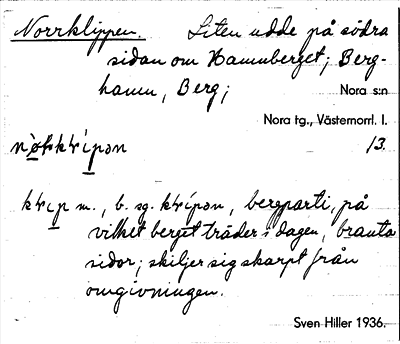 Norrklippen. Liten udde på södra
sidan om Hamnberget; Berg-
hamn, Berg; Nora s:n
Nora tg., Västernorrl. l.
13.
m., b. sg. bergparti, på
vilket berget träder i dagen, branta
sidor; skiljer sig skarpt från
omgivningen.
Sven Hiller 1936.